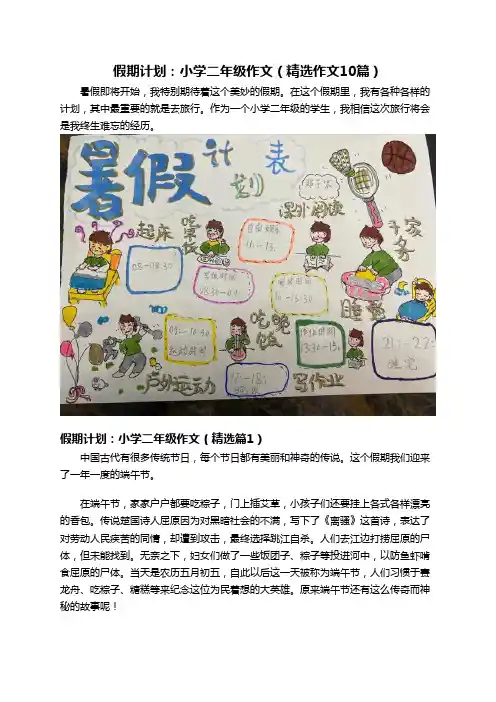 假期计划：小学二年级作文（精选作文10篇）
暑假即将开始，我特别期待着这个美妙的假期。在这个假期里，我有各种各样的
计划，其中最重要的就是去旅行。作为一个小学二年级的学生，我相信这次旅行将会
是我终生难忘的经历。
暑假计划表
起床
吃早饭
课外阅读
干家务
睡觉
吃晚饭
户外运动
写作业
假期计划：小学二年级作文（精选篇1）
中国古代有很多传统节日，每个节日都有美丽和神奇的传说。这个假期我们迎来
了一年一度的端午节。
在端午节，家家户户都要吃粽子，门上插艾草，小孩子们还要挂上各式各样漂亮
的香包。传说楚国诗人屈原因为对黑暗社会的不满，写下了《离骚》这首诗，表达了
对劳动人民疾苦的同情，却遭到攻击，最终选择跳江自杀。人们去江边打捞屈原的尸
体，但未能找到。无奈之下，妇女们做了一些饭团子、粽子等投进河中，以防鱼虾啃
食屈原的尸体。当天是农历五月初五，自此以后这一天被称为端午节，人们习惯于赛
龙舟、吃粽子、糖糕等来纪念这位为民着想的大英雄。原来端午节还有这么传奇而神
秘的故事呢！